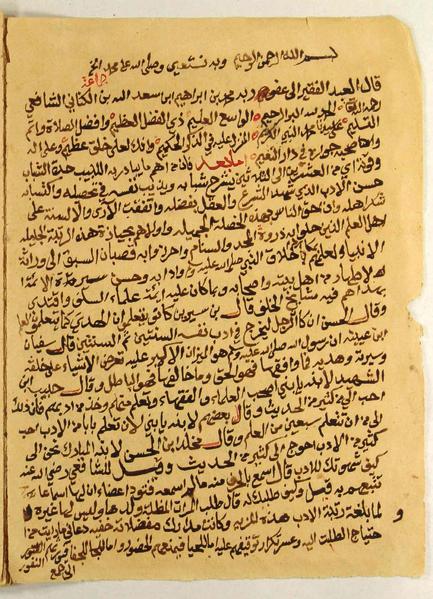 بسم الله الرحمن الرحيم وبه نستعين وصلى الله على محمد
جماعة
قال العبد الفقير الى عفو ربه محمد بن ابراهيم ابن سعد الله بن الكناني الشافعي
رحمه الله الحمد لله البر الرحيم الواسع العليم ذي الفضل العظيم وافضل الصلاة واتم
التسليم على سيدنا محمد النبي الكريم المنزل عليه في الذكر الحكيم وانك لعلى خلق عظيم وعلى اله
واصحابه جواره في دار النعيم اما بعد فان اهم ما يبادر به اللبيب حدة الشباب
شرخ شبابه ويدئب نفسه في تحصيله واكتسابه
حسن الادب الذي شهد الشرع والعقل بفضله واتفقت الاراء والالسنة على
شكر اهله وان احق الناس بهذه الخصلة الجميلة واولاهم بحيازة هذه المرتبة الجليلة
اهل العلم الذين حلوا به ذروة المجد والسناء واحرزوا به قصبات السبق الى وراثة
الانبياء لعلمهم بمكارم اخلاق النبي صلى الله عليه وسلم وادابه وحسن سيرة الائمة
الاطهار من اهل بيته واصحابه وبما كان عليه ائمة علماء السلف واقتدى
بهداهم فيه مشايخ الخلف قال بن سيرين كانوا يتعلمون الهدي كما يتعلمون العلم
وقال الحسن ان كان الرجل ليخرج في ادب نفسه السنتين ثم السنتين قال سفيان
ابن عيينة ان رسول الله صلى الله عليه وسلم هو الميزان الاكبر عليه تعرض الاشياء على خلقه
وسيرته وهديه فما وافقها فهو الحق وما خالفها فهو الباطل وقال حبيب ابن
الشهيد لابنه يا بني اصحب العلماء والفقهاء وتعلم منهم وخذ من ادبهم فان ذلك
احب الي من كثير من الحديث وقال بعضهم لابنه يا بني لان تتعلم بابا من الادب احب
الي من ان تتعلم سبعين من العلم وقال مخلد بن الحسن لابن المبارك نحن الى
كثير من الادب احوج الى كثير من الحديث وقيل للشافعي رضي الله عنه
كيف شهوتك للادب قال اسمع بالحرف منه مما لم اسمعه فتود اعضائي ان لها اسماعا
تتنعم به قيل وكيف طلبك له قال طلب المراة المضلة ولدها وليس لها غيره
ولما بلغت رتبة الادب هذه المزية وكانت مدارك مفضلاته خفية دعاني ما رايت من
احتياج الطلبة اليه وعسر تكرار توقيفهم عليه اما لحيا فيمنعهم الحضور واما لجفا فيورثهم النفور
الى جمع